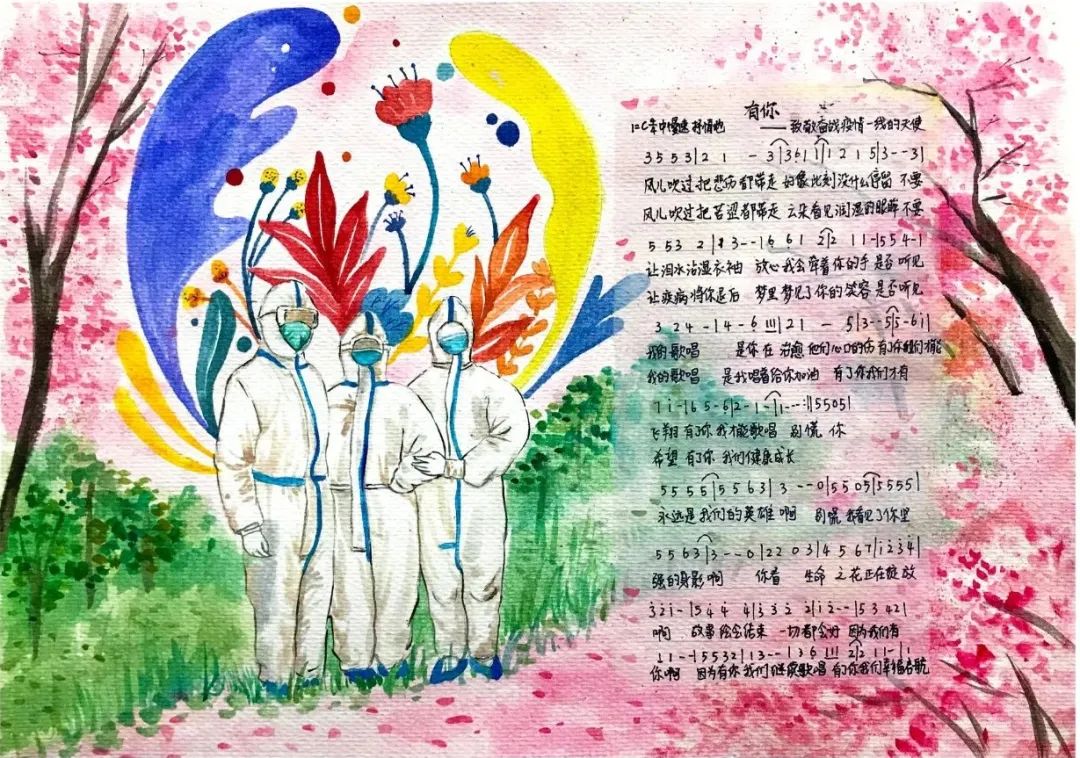 有你
1=C 字中慢速 抒情地 ——致敬奋战疫情一线的天使
3 5 5 3|2 1 - 3|3 6 1 1|1 2 1 5|3 - - 3|
风儿吹过把悲伤都带走 好像此刻没什么停留 不要
风儿吹过把苦涩都带走 云朵看见润湿的眼眸 不要
5 5 3 2|1 3 - -|6 6 1 2|2 1 1 -|5 5 4 -|
让泪水沾湿衣袖 放心我会牵着你的手 是否听见
让疾病将你退后 梦里梦见了你的笑容 是否听见
3 2 4 -|4 - 6 111|2 1 - 5|3 - - 5|5 - 6 i|
我的歌唱 是你在治愈他们心口的伤 有了你我们才能
我的歌唱 是我唱着给你加油 有了你我们才有
7 i -|6 5 - 6|2 - 1 -|1 - - -:‖5 5 0 5|
飞翔 有了你我才能歌唱 别慌 你
希望 有了你我们健康成长
5 5 5 5|5 5 6 3|3 - - 0|5 5 0 5|5 5 5 5|
永远是我们的英雄啊 别慌 我看见了你坚
5 5 6 3|3 - - 0|2 2 0 3|4 5 6 7|i 2 3 4|
强的身影啊 你看 生命之花正在绽放
3 2 i -|5 4 4 4|3 3 2 2|i 2 - -|5 3 4 2|
啊 故事总会结束 一切都会好 因为我们有
1 1 - -|5 5 3 2|1 3 - -|3 6 111|2 2 1 1 -|1
你啊 因为有你我们继续歌唱 有了你我们幸福启航